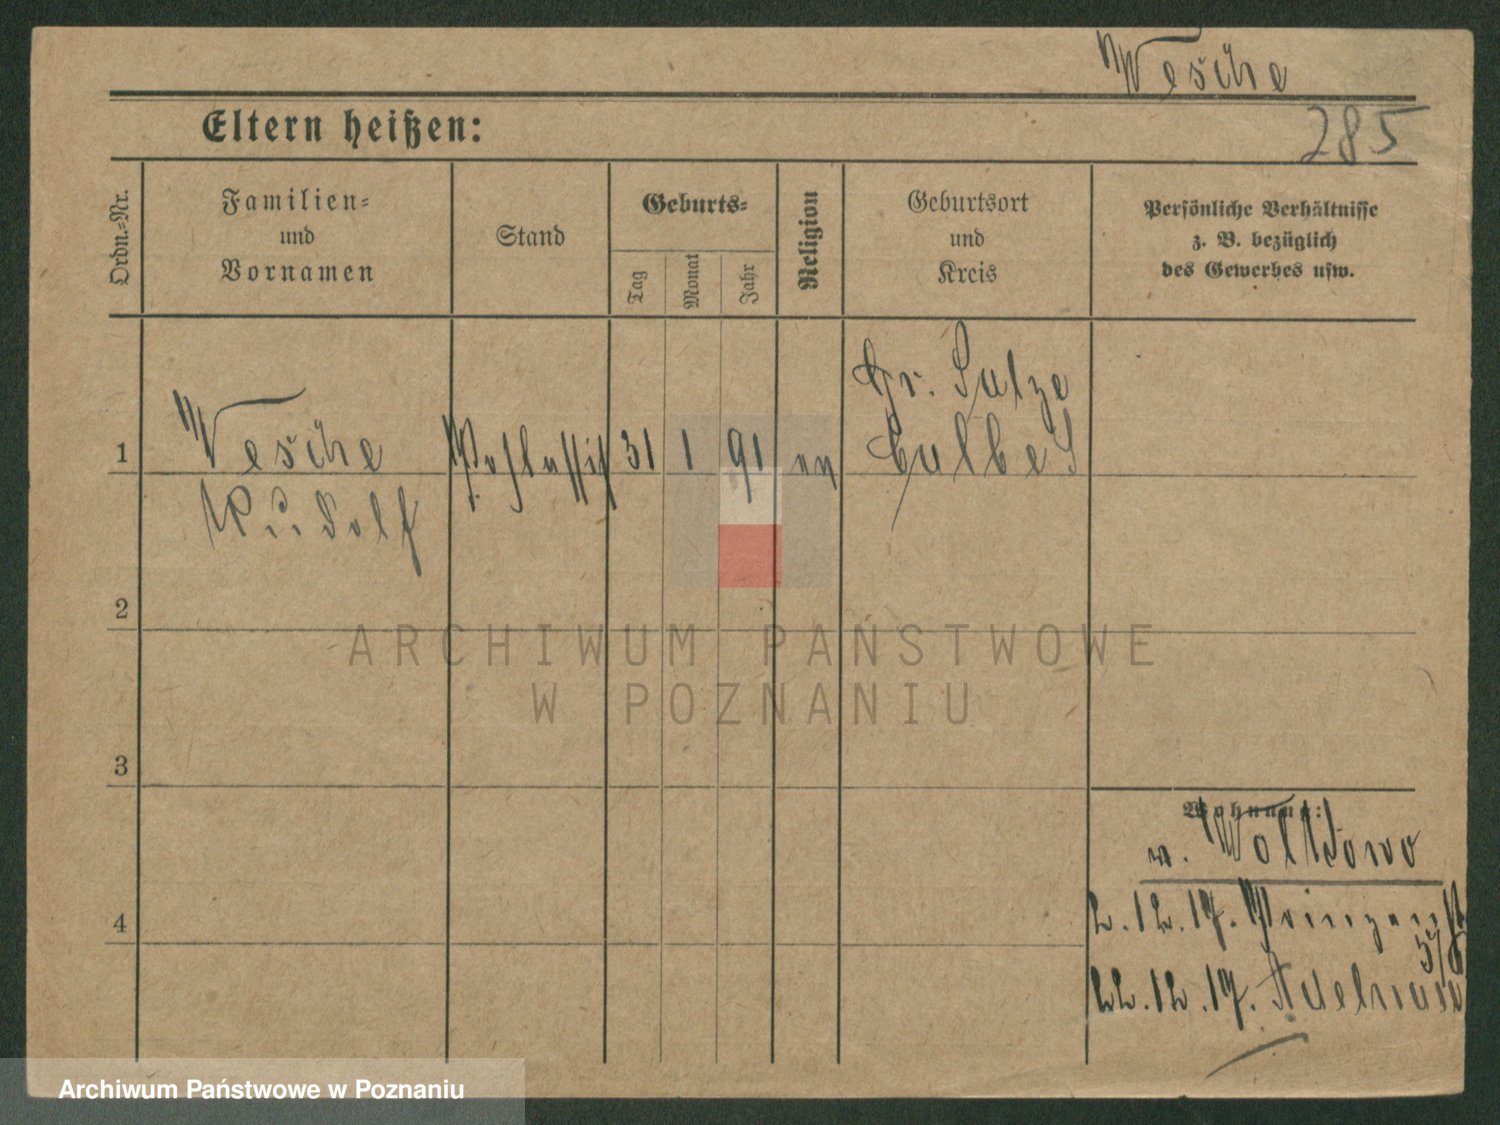 Wesche
Eltern heißen:
285
Ordn.-Nr.
Familien-
und
Vornamen
Stand
Geburts-
Tag
Monat
Jahr
Religion
Geburtsort
und
Kreis
Persönliche Verhältnisse
z. B. bezüglich
des Gewerbes usw.
1
Wesche
Rudolf
31
1
91
Gr. Salze
Calbe S
2
3
4
Wohnung:
v.
2.12.17. Prinzenst
22.12.17.
ARCHIWUM PAŃSTWOWE
W POZNANIU
Archiwum Państwowe w Poznaniu